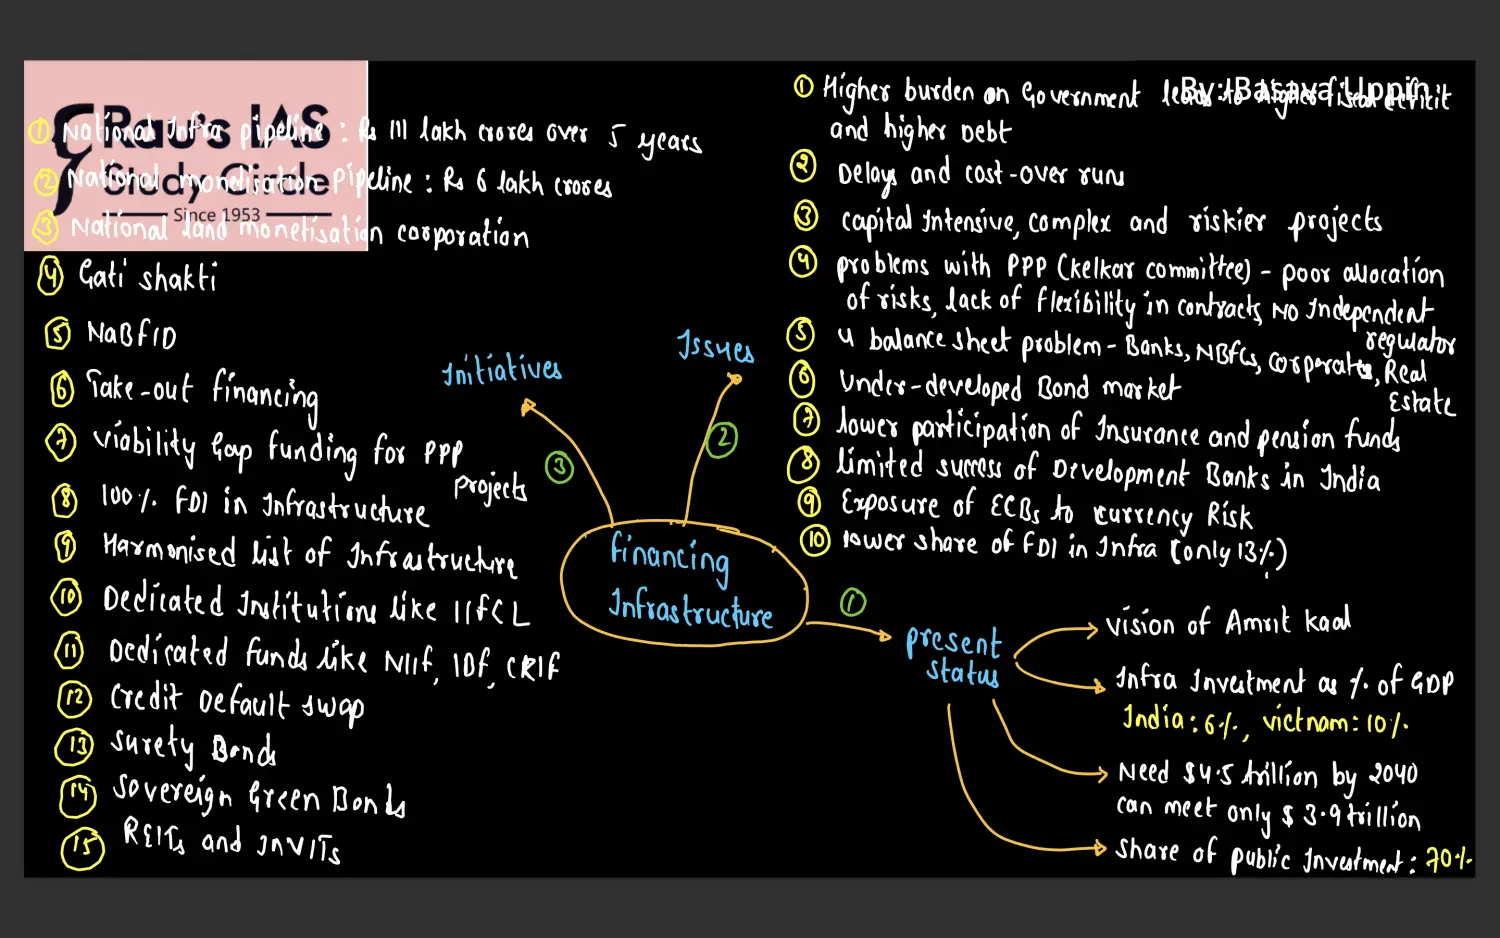 Rau's IAS
Study Circle
Since 1953
By: Basava Uppin
① National Infra pipeline : Rs 111 lakh crores over 5 years
② National monetisation pipeline : Rs 6 lakh crores
③ National land monetisation corporation
④ Gati shakti
⑤ NaBFID
⑥ Take-out financing
⑦ Viability Gap funding for PPP
projects
⑧ 100% FDI in Infrastructure
⑨ Harmonised list of Infrastructure
⑩ Dedicated Institutions like IIFCL
⑪ Dedicated funds like NIIF, IDF, CRIF
⑫ Credit Default swap
⑬ Surety Bonds
⑭ Sovereign Green Bonds
⑮ REITs and InVITs
Initiatives
③
Issues
②
Financing
Infrastructure
①
present
status
① Higher burden on Government leads to higher fiscal deficit
and higher Debt
② Delays and cost-over runs
③ capital Intensive, complex and riskier projects
④ problems with PPP (kelkar committee) - poor allocation
of risks, lack of flexibility in contracts, No Independent
regulator
⑤ 4 balance sheet problem - Banks, NBFCs, corporates, Real
Estate
⑥ Under-developed Bond market
⑦ lower participation of Insurance and pension funds
⑧ limited success of Development Banks in India
⑨ Exposure of ECBs to currency Risk
⑩ lower share of FDI in Infra (only 13%)
vision of Amrit kaal
Infra Investment as % of GDP
India: 6%, vietnam: 10%
Need $4.5 trillion by 2040
can meet only $ 3.9 trillion
share of public Investment: 70%